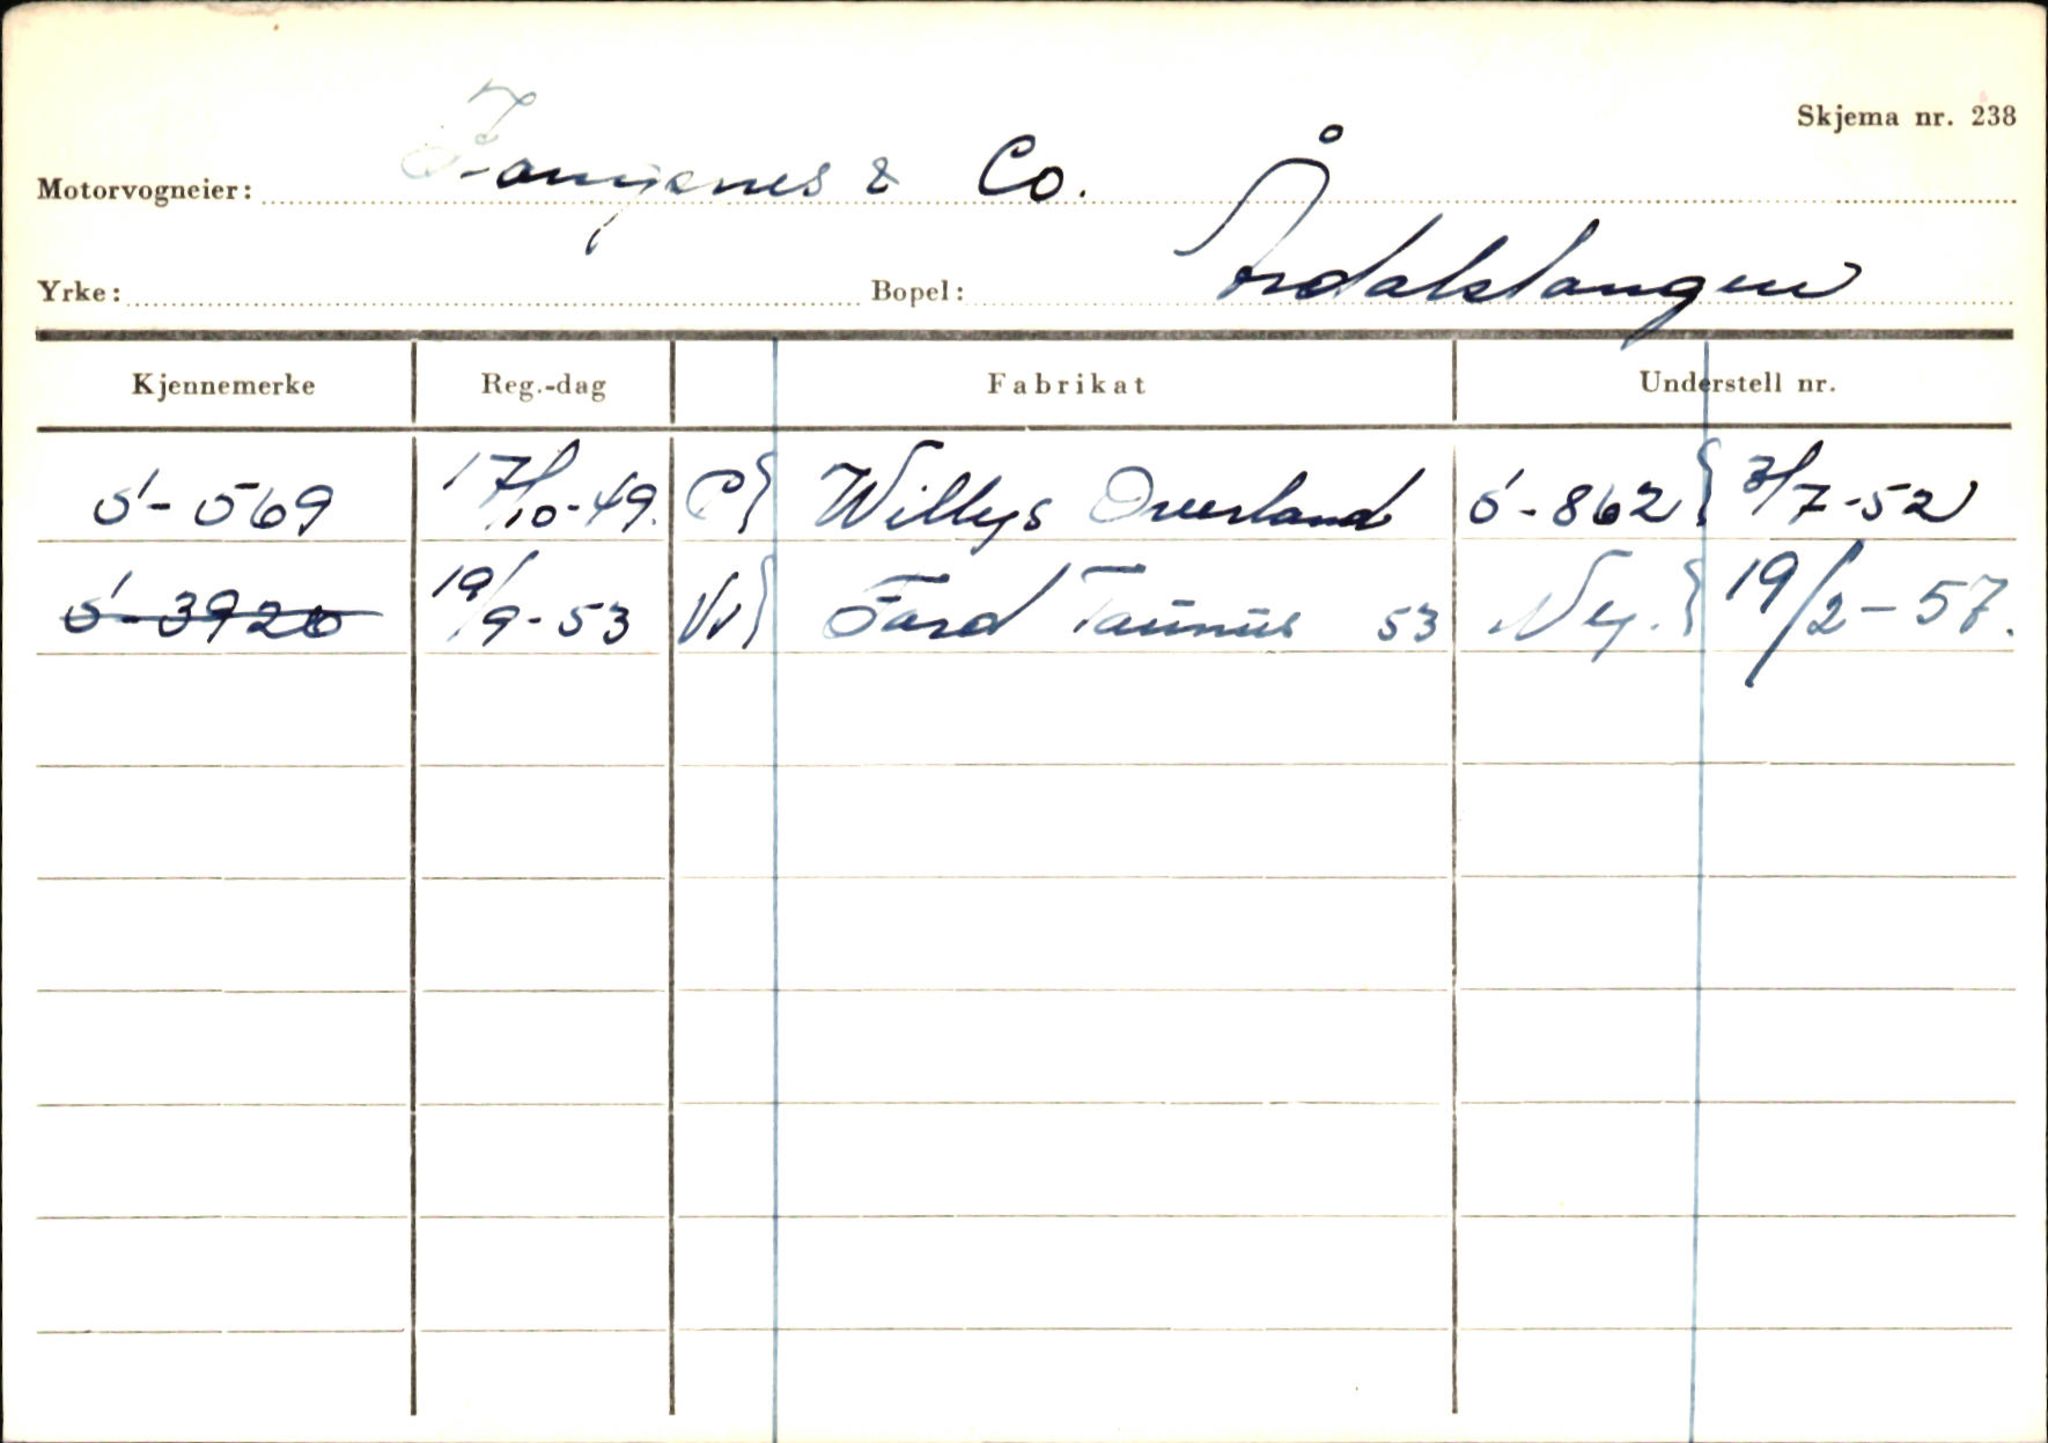 Skjema nr. 238
Motorvogneier: & Co.
Yrke: Bopel: Årdalstangen
Kjennemerke Reg.-dag Fabrikat Understell nr.
S-569 17/10-49. P} Willys Overland S-862 } 3/7-52
S-3920 19/9-53 V} Ford Taunus 53 Ny. } 19/2-57.